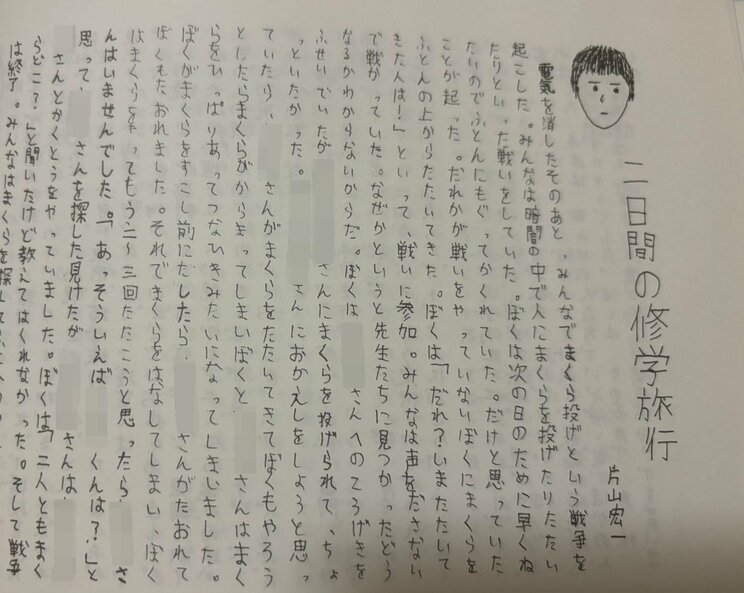 二日間の修学旅行
片山宏一
電気を消したそのあと、みんなでまくら投げという戦争を
起こした。みんなは暗闇の中で人にまくらを投げたりたたい
たりといった戦いをしていた。ぼくは次の日のために早くね
たいのでふとんにもぐってかくれていた。だけと思っていた
ことが起った。だれかが戦いをやっていないぼくにまくらを
ふとんの上からたたいてきた。ぼくは「だれ?いまたたいて
きた人は!」といって、戦いに参加。みんなは声をださない
で戦がっていた。なぜかというと先生たちに見つかったどう
なるかわからないからだ。ぼくは さんへのころげきを
ふせいでいたが さんにまくらを投げられて、ちょ
っといたかった。 さんにおかえしをしようと思っ
ていたら、 さんがまくらをたたいてきてぼくもやろう
としたらまくらがからまってしまいぼくと さんはまく
らをひっぱりあってつなひきみたいになってしまいました。
ぼくがまくらをすこし前にだしたら、 さんがたおれて
ぼくもたおれました。それでまくらをはなしてしまい、ぼく
はまくらをもってもう二〜三回たたこうと思ったら さ
んはいませんでした。「あっそういえば くんは?」と
思って、 さんを探した見けたが さんは
さんとかくとうをやっていました。ぼくは「二人ともまく
らどこ?」と聞いたけど教えてはくれなかった。そして戦争
は終了。みんなはまくらを探して